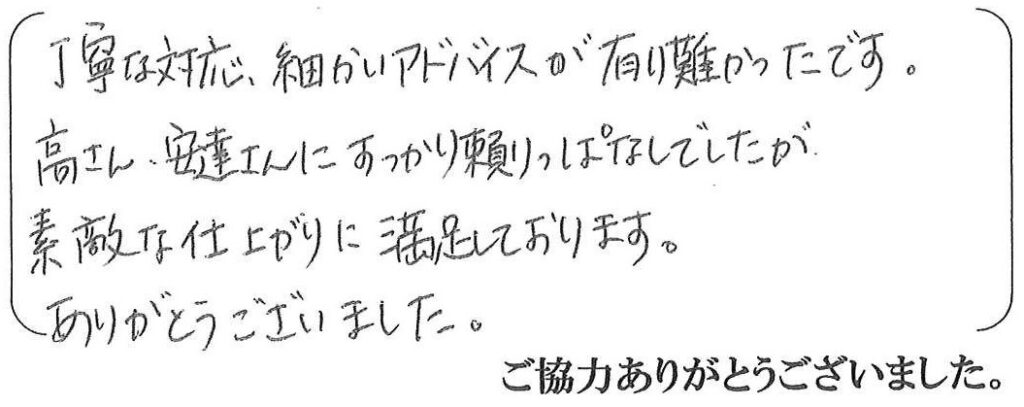 丁寧な対応、細かいアドバイスが有り難かったです。
高さん、安達さんにすっかり頼りっぱなしでしたが
素敵な仕上がりに満足しております。
ありがとうございました。
ご協力ありがとうございました。